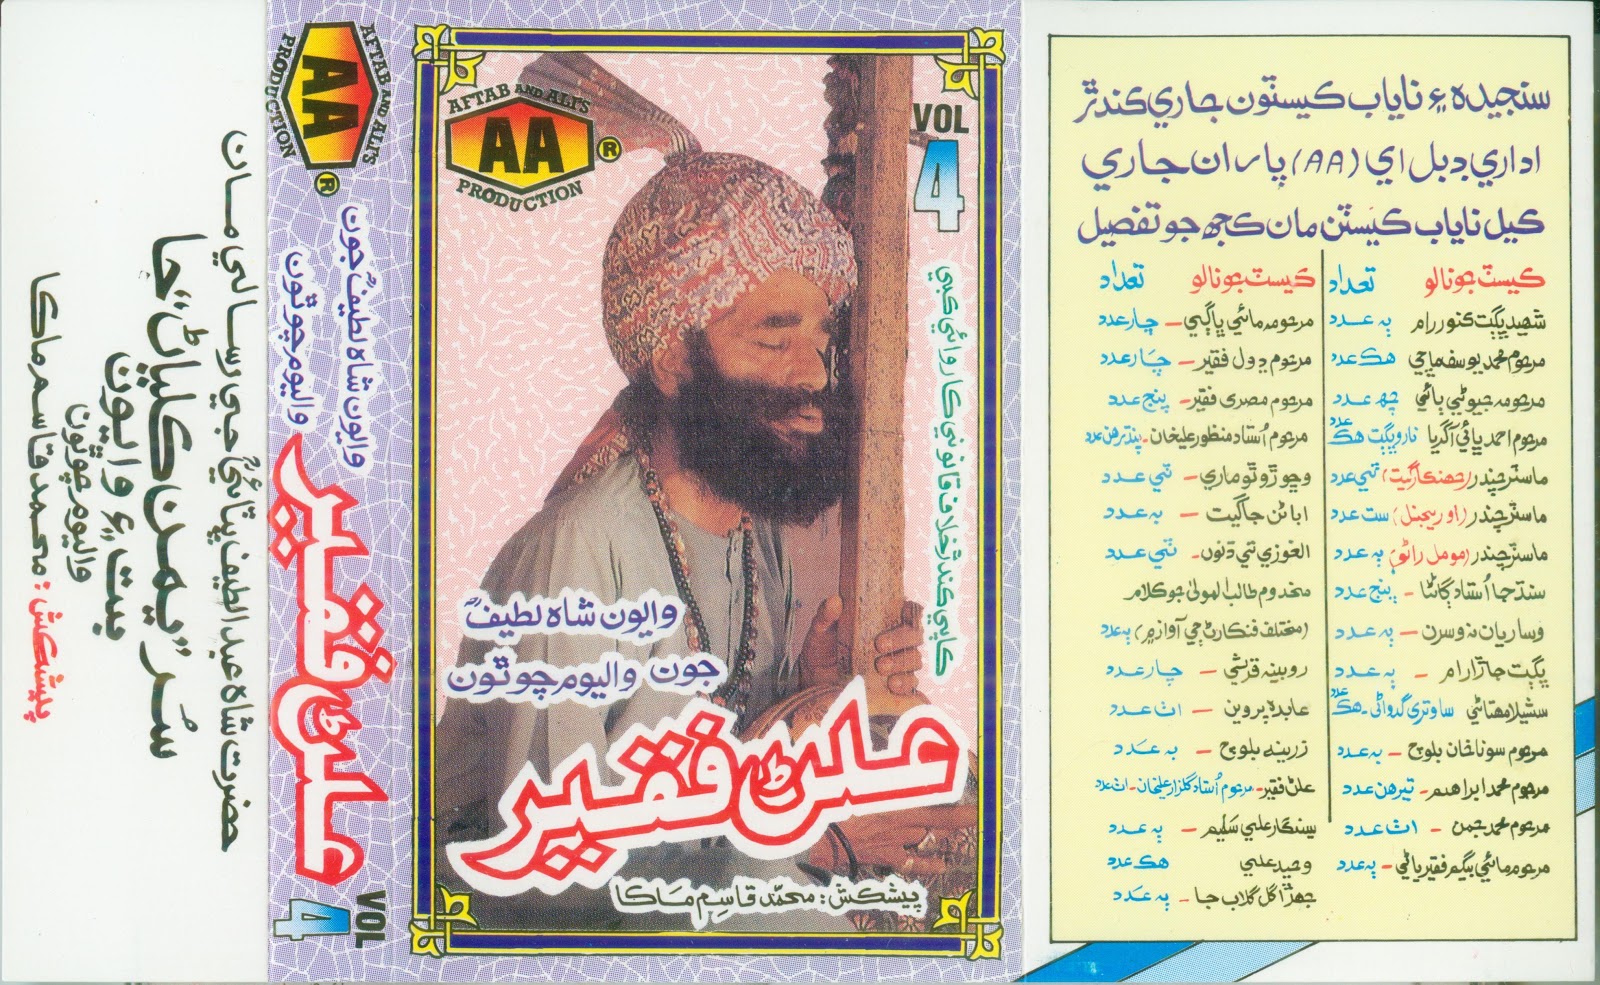 AFTAB AND ALI'S
AA
PRODUCTION
®
VOL
4
ڪاپي ڪندڙ خلاف قانوني ڪاروائي ڪبي
وايون شاھ لطيفؒ
جون واليوم چوٿون
علڻ فقير
پيشڪش: محمد قاسم ماڪا
AFTAB AND ALI'S
AA
PRODUCTION
®
وايون شاھ لطيفؒ جون
واليوم چوٿون
علڻ فقير
VOL
4
حضرت شاھ عبداللطيف ڀٽائيؒ جي رسالي مان
سُر "يمن ڪلياڻ" جا
بيت ۽ وايون
واليوم چوٿون
پيشڪش: محمد قاسم ماڪا
سنجيده ۽ ناياب ڪيسٽون جاري ڪندڙ
اداري ڊبل اي (AA) پاران جاري
ڪيل ناياب ڪيسٽن مان ڪجھ جو تفصيل
ڪيسٽ جو نالو تعداد
شهيد ڀڳت ڪنور رام ٻه عدد
مرحوم محمد يوسف هڪ عدد
مرحومه جيوڻي ٻائي ڇھ عدد
مرحوم احمد ڀائي آگريا نارو ڀڳت هڪ عدد
ماسٽر چندر (جهنڪار گيت) ٽي عدد
ماسٽر چندر (اوريجنل) ست عدد
ماسٽر چندر (مومل راڻو) ٻه عدد
سنڌ جا اُستاد ڳائڻا - پنج عدد
وساريان نه وسرن - ٻه عدد
ڀڳت جاڙارام - ٻه عدد
سشيلا مهتاڻي ساوتري گدواڻي - هڪ عدد
مرحوم سونا خان بلوچ - ٻه عدد
مرحوم محمد ابراهيم - تيرهن عدد
مرحوم محمد جمن - اٺ عدد
مرحومه مائي بيگم فقيرياڻي - ٻه عدد
ڪيسٽ جو نالو تعداد
مرحومه مائي ڀاڳي - چار عدد
مرحوم ڍول فقير - چار عدد
مرحوم مصري فقير - پنج عدد
مرحوم اُستاد منظور عليخان - پندرهن عدد
وڇوڙو ٿو ماري - ٽي عدد
اباڻن جا گيت - ٻه عدد
الغوزي تي ڌنون - ٽي عدد
مخدوم طالب المولىٰ جو ڪلام
(مختلف فنڪارن جي آواز ۾) ٻه عدد
روبينه قريشي - چار عدد
عابده پروين - اٺ عدد
زرينه بلوچ - ٻه عدد
علڻ فقير - مرحوم اُستاد گلزار عليخان - اٺ عدد
سينگار علي سليم - ٻه عدد
وحيد علي هڪ عدد
جهڙا گل گلاب جا - ٻه عدد